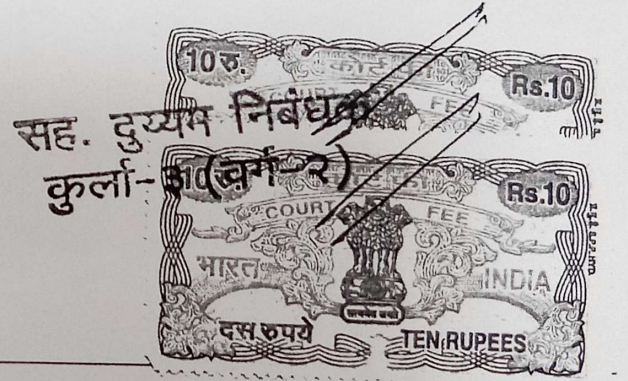 10रु. कोर्ट फी Rs.10
COURT FEE
सह. दुय्यम निबंधक
कुर्ला-३ (वर्ग-२)
Rs.10
COURT FEE
भारत INDIA
सत्यमेव जयते
दस रुपये TEN RUPEES